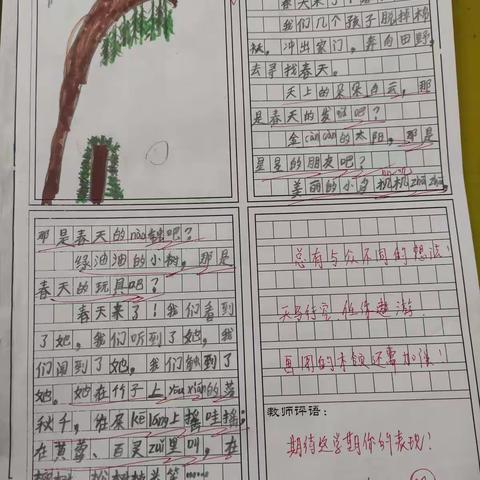 春天来了！
我们几个孩子脱掉棉
袄，冲出家门，奔向田野，
去寻找春天。
天上的朵朵白云，那
是春天的发 吧？
金càncàn的太阳，那是
星星的朋友吧？
美丽的小鸟机机zhāzhā，
那是春天的nào钟吧？
绿油油的小树，那是
春天的玩具吧？
春天来了！我们看到
了她，我们听到了她，我
们闻到了她，我们触到了
她。她在竹子上yōuxián的荡
秋千，在朵 上摇哇摇；
在黄莺、百灵zuǐ里叫，在
总有与众不同的想法！
天马行空，任你遨游！
画图的本领还要加强！
教师评语：
期待这学期你的表现！